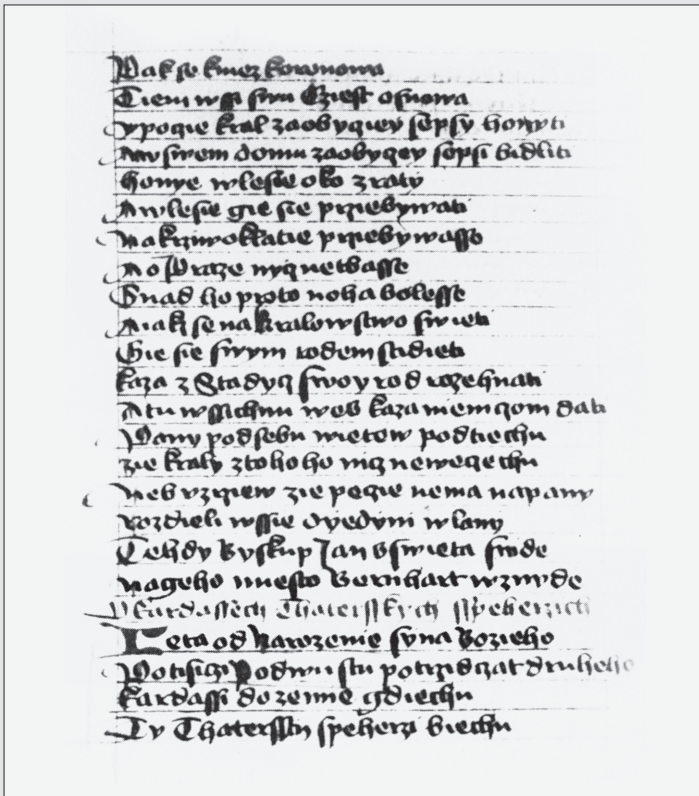 Pak se kniez korunowa
Tiem wssi swu Cziest osnowa
Ypogie kral zaobyczey sepsy honyti
Aw swem domu zaobyczey sepsi bidliti
honye wlesie oko zraty
Awlesie gie sie prziebywati
Nakrziwoklatie prziebywasse
Ao Praze nycz netbasse
Snad ho proto noha bolesse
Aiakz se na kralowstwo swieti
Gie sie swym rodem stidieti
kaza z Stadycz swoy rod rozehnati
Atu wssichnu wes kaza niemczom dati
Pany podsebu wietow podtiechu
zie kraly ztoho ho nicz newecechu
Neb vzrziew zie peczie nema napany
rozdieli wssie dyedyni wlany
Tehdy Byskup Jan sswieta snide
nageho miesto Bernhart wznyde
O kardassech Thaterskych sspeherzich
Leta od Narozenie syna Bozieho
Potisiczi Podwu stu potrzidczat druheho
kardassi dozemie gdiechu
Ty Thatersstij speherzi biechu